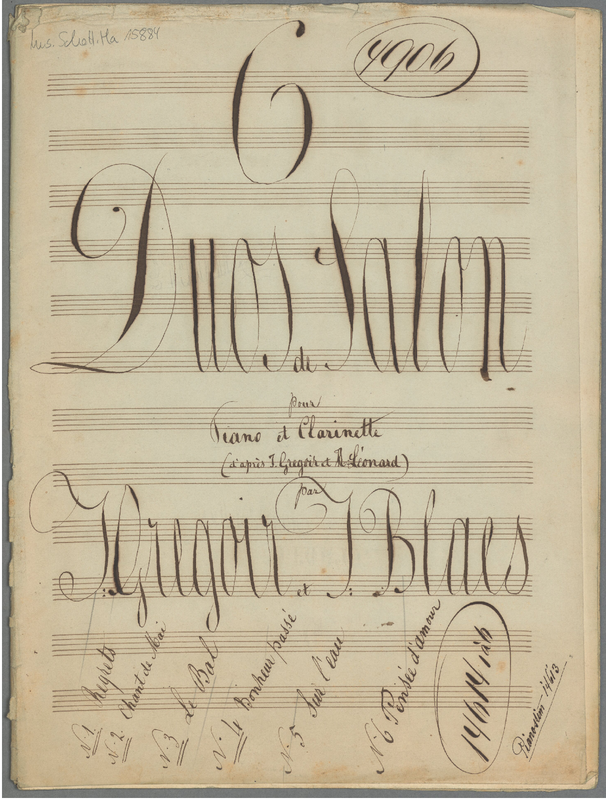 Mus. Schott. Ha 15884
4906
6
Duos de Salon
pour
Piano et Clarinette
(d'après J. Gregoir et H. Léonard)
par
J: Gregoir et J: Blaes
Nº 1 Regrets
Nº 2 Chant de Mai
Nº 3 Le Bal
Nº 4 Bonheur passé
Nº 5 Sur l'eau
Nº 6 Pensée d'amour
14614 1 à 6
14613